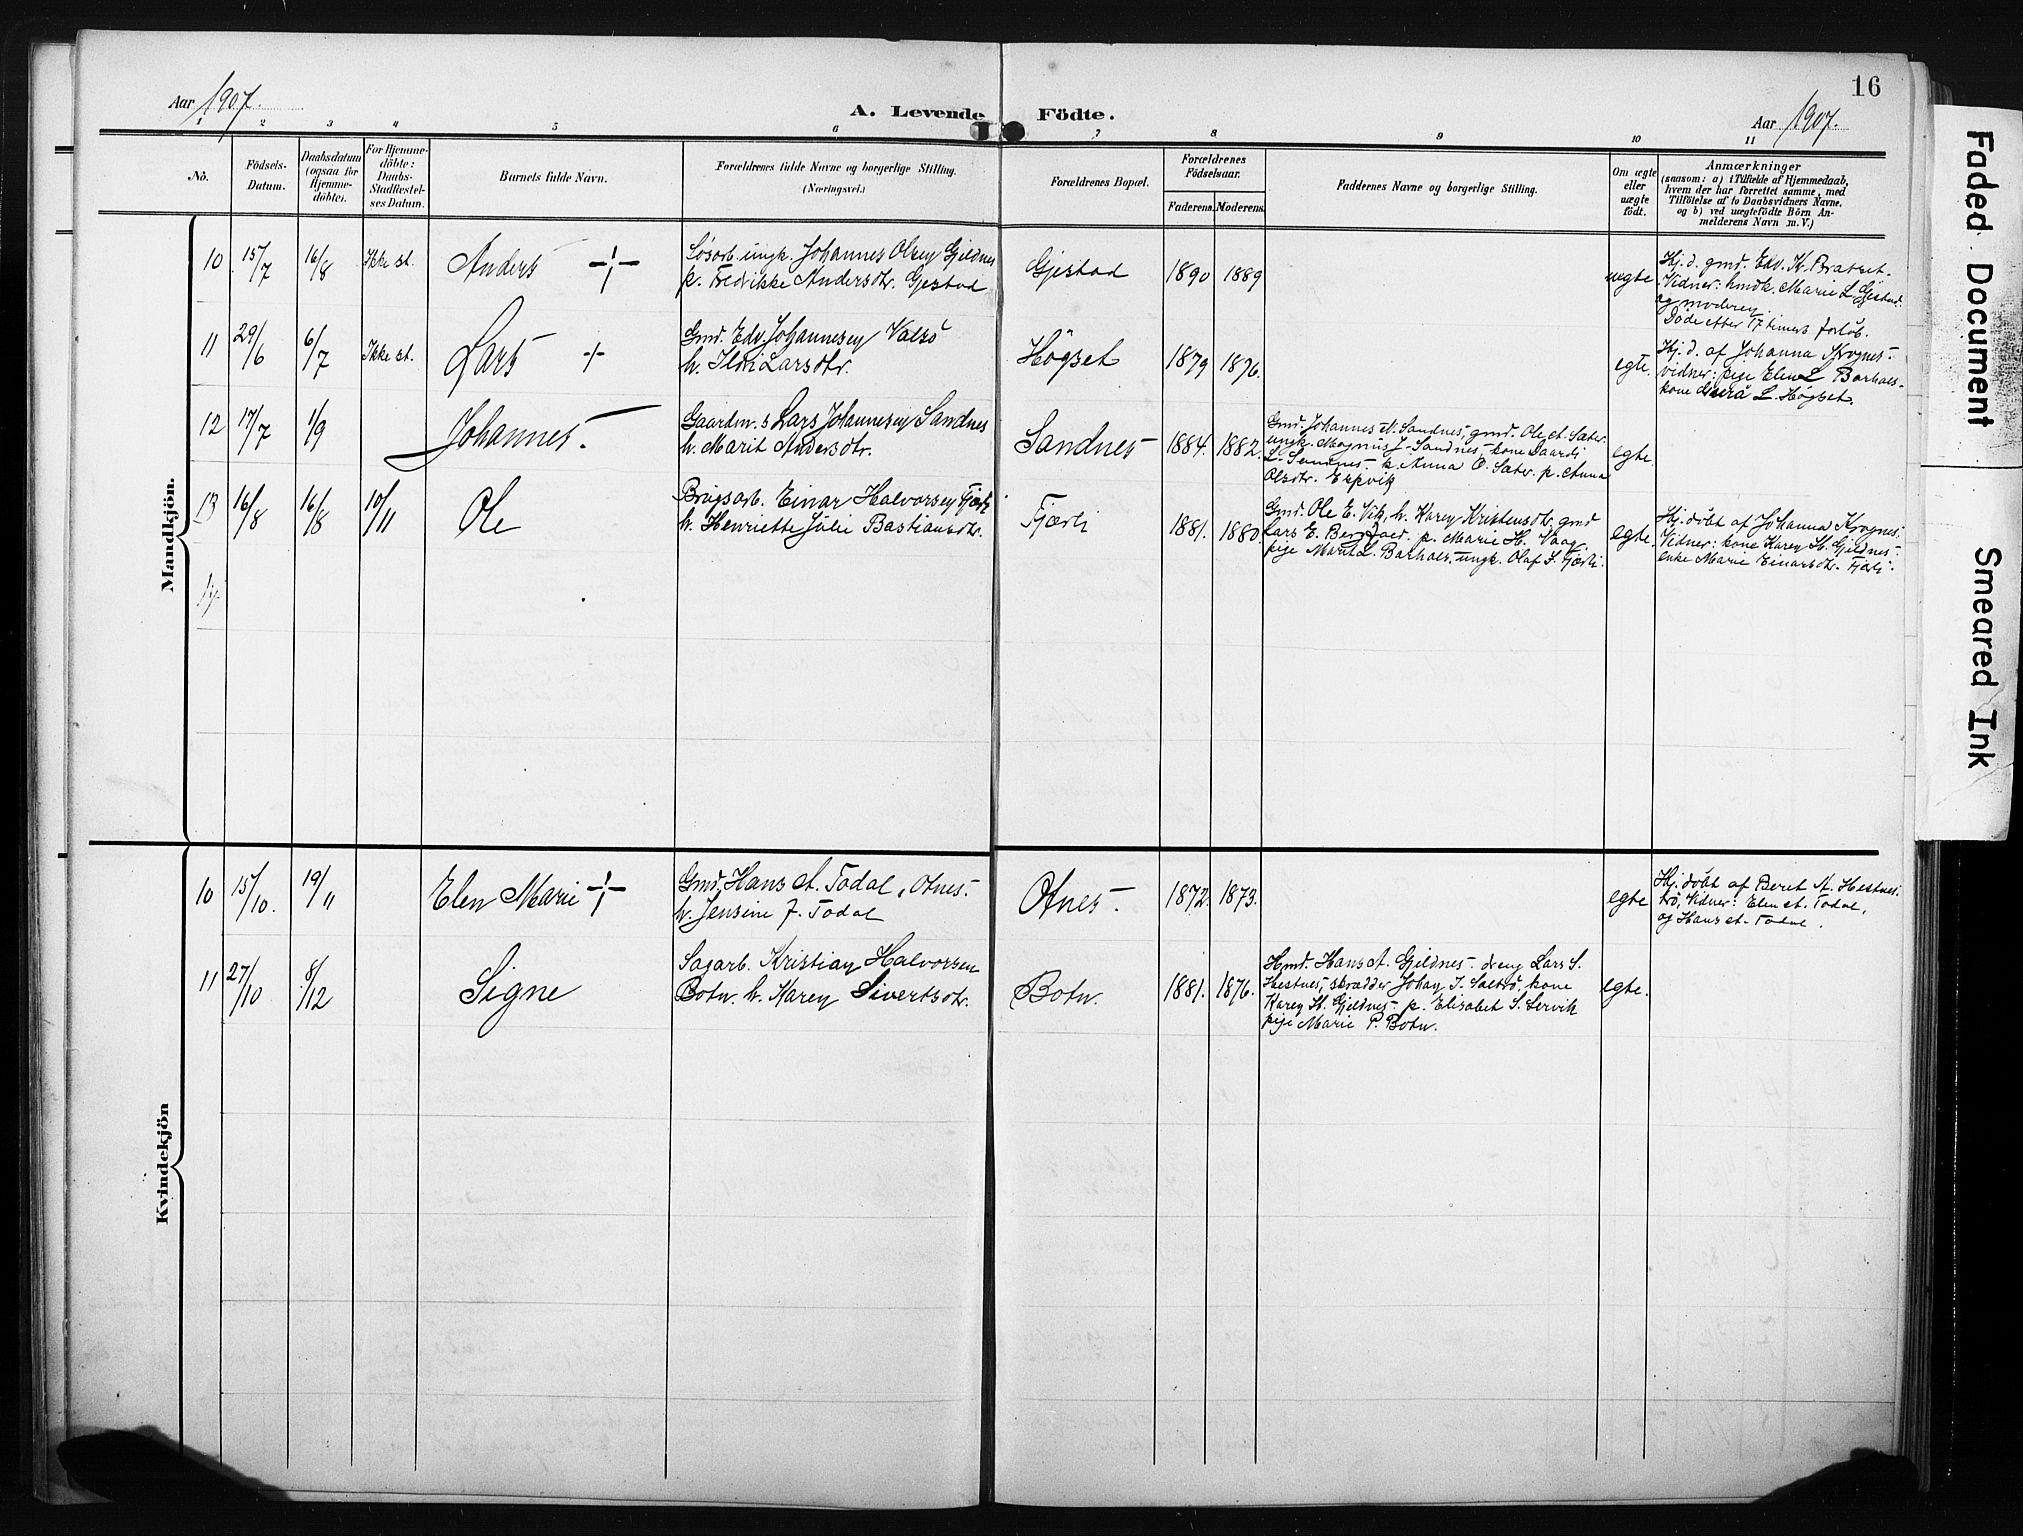 16
Aar 1907.
A. Levende Födte.
Aar 1907.
1 2 3 4 5 6 7 8 9 10 11
Nō.
Födsels-Datum.
Daabsdatum (ogsaa for Hjemmedöbte).
For Hjemmedöbte: Daabs-Stadfæstelses Datum.
Barnets fulde Navn.
Forældrenes fulde Navne og borgerlige Stilling. (Næringsvei.)
Forældrenes Bopæl.
Forældrenes Födselsaar.
Faderens. Moderens.
Faddernes Navne og borgerlige Stilling.
Om ægte eller uægte födt.
Anmærkninger
(saasom: a) i Tilfælde af Hjemmedaab, hvem der har forrettet samme, med Tilföielse af to Daabsvidners Navne, og b) ved uægtefödte Börn Anmelderens Navn m. V.)
Mandkjön.
10 15/7 16/8 Ikke st. Anders
ungk. Johannes Olsen Gjeldnes
p. Fredrikke Andersdtr. Gjestad
Gjestad 1890 1889 uegte
Hj. d. gmd. Edv. K. Bratset.
Vidner: Marie L Gjestad
og moderen.
Døde efter 17 timers forløb.
11 29/6 6/7 Ikke st. Lars
Gmd. Edv. Johannesen Valsø
h. Larsdtr.
Høgset 1879 1876. egte.
Hj. d. af Johanna Krognes.
vidner: pige Elen L Barhals.
kone L. Høgset.
12 17/7 1/9 Johannes.
Gaardm. s Lars Johannesen Sandnes
h. Marit Andersdtr.
Sandnes 1884. 1882.
Gmd. Johannes A. Sandnes, gmd. Ole A. Sæter.
ungk. Magnus J. Sandnes, kone
L. Sandnes. p. Anna O. Sæter. p. Anna
Olsdtr. Espvik
egte.
13 16/8 16/8 10/11 Ole
Brugsarb. Einar Halvorsen Fjærli
h. Henriette Julie Bastiansdtr.
Fjærli 1881. 1880.
Gmd. Ole E. Vik, h. Karen Kristensdtr. gmd
Lars E. p. Marie H. Vaag
pige Marit L. Barhals. ungk. Olaf S. Fjærli.
egte.
Hj. døbt af Johanna Krognes.
Vidner: kone Karen H. Gjeldnes.
enke Marie Einarsdtr. Fjærli.
14
Kvindekjön
10 15/10. 19/11 Elen Marie
Gmd. Hans A. Todal, Otnes.
h. Jensine J. Todal
Otnes. 1872. 1873. egte
Hj. døbt af Beret A. Hestnes
trø, Vidner: Elen A. Todal,
og Hans A. Todal.
11 27/10 8/12 Signe
Sagarb. Kristian Halvorsen
Botn. h. Karen Sivertsdtr.
Botn. 1881. 1876.
Hmd. Hans A. Gjeldnes. dreng Lars S.
Hestnes, skrædder Johan I. Sæterø, kone
Karen H. Gjeldnes. p. Elisabet S. Lervik
pige Marie P. Botn.
egte.
Faded Document
Smeared Ink